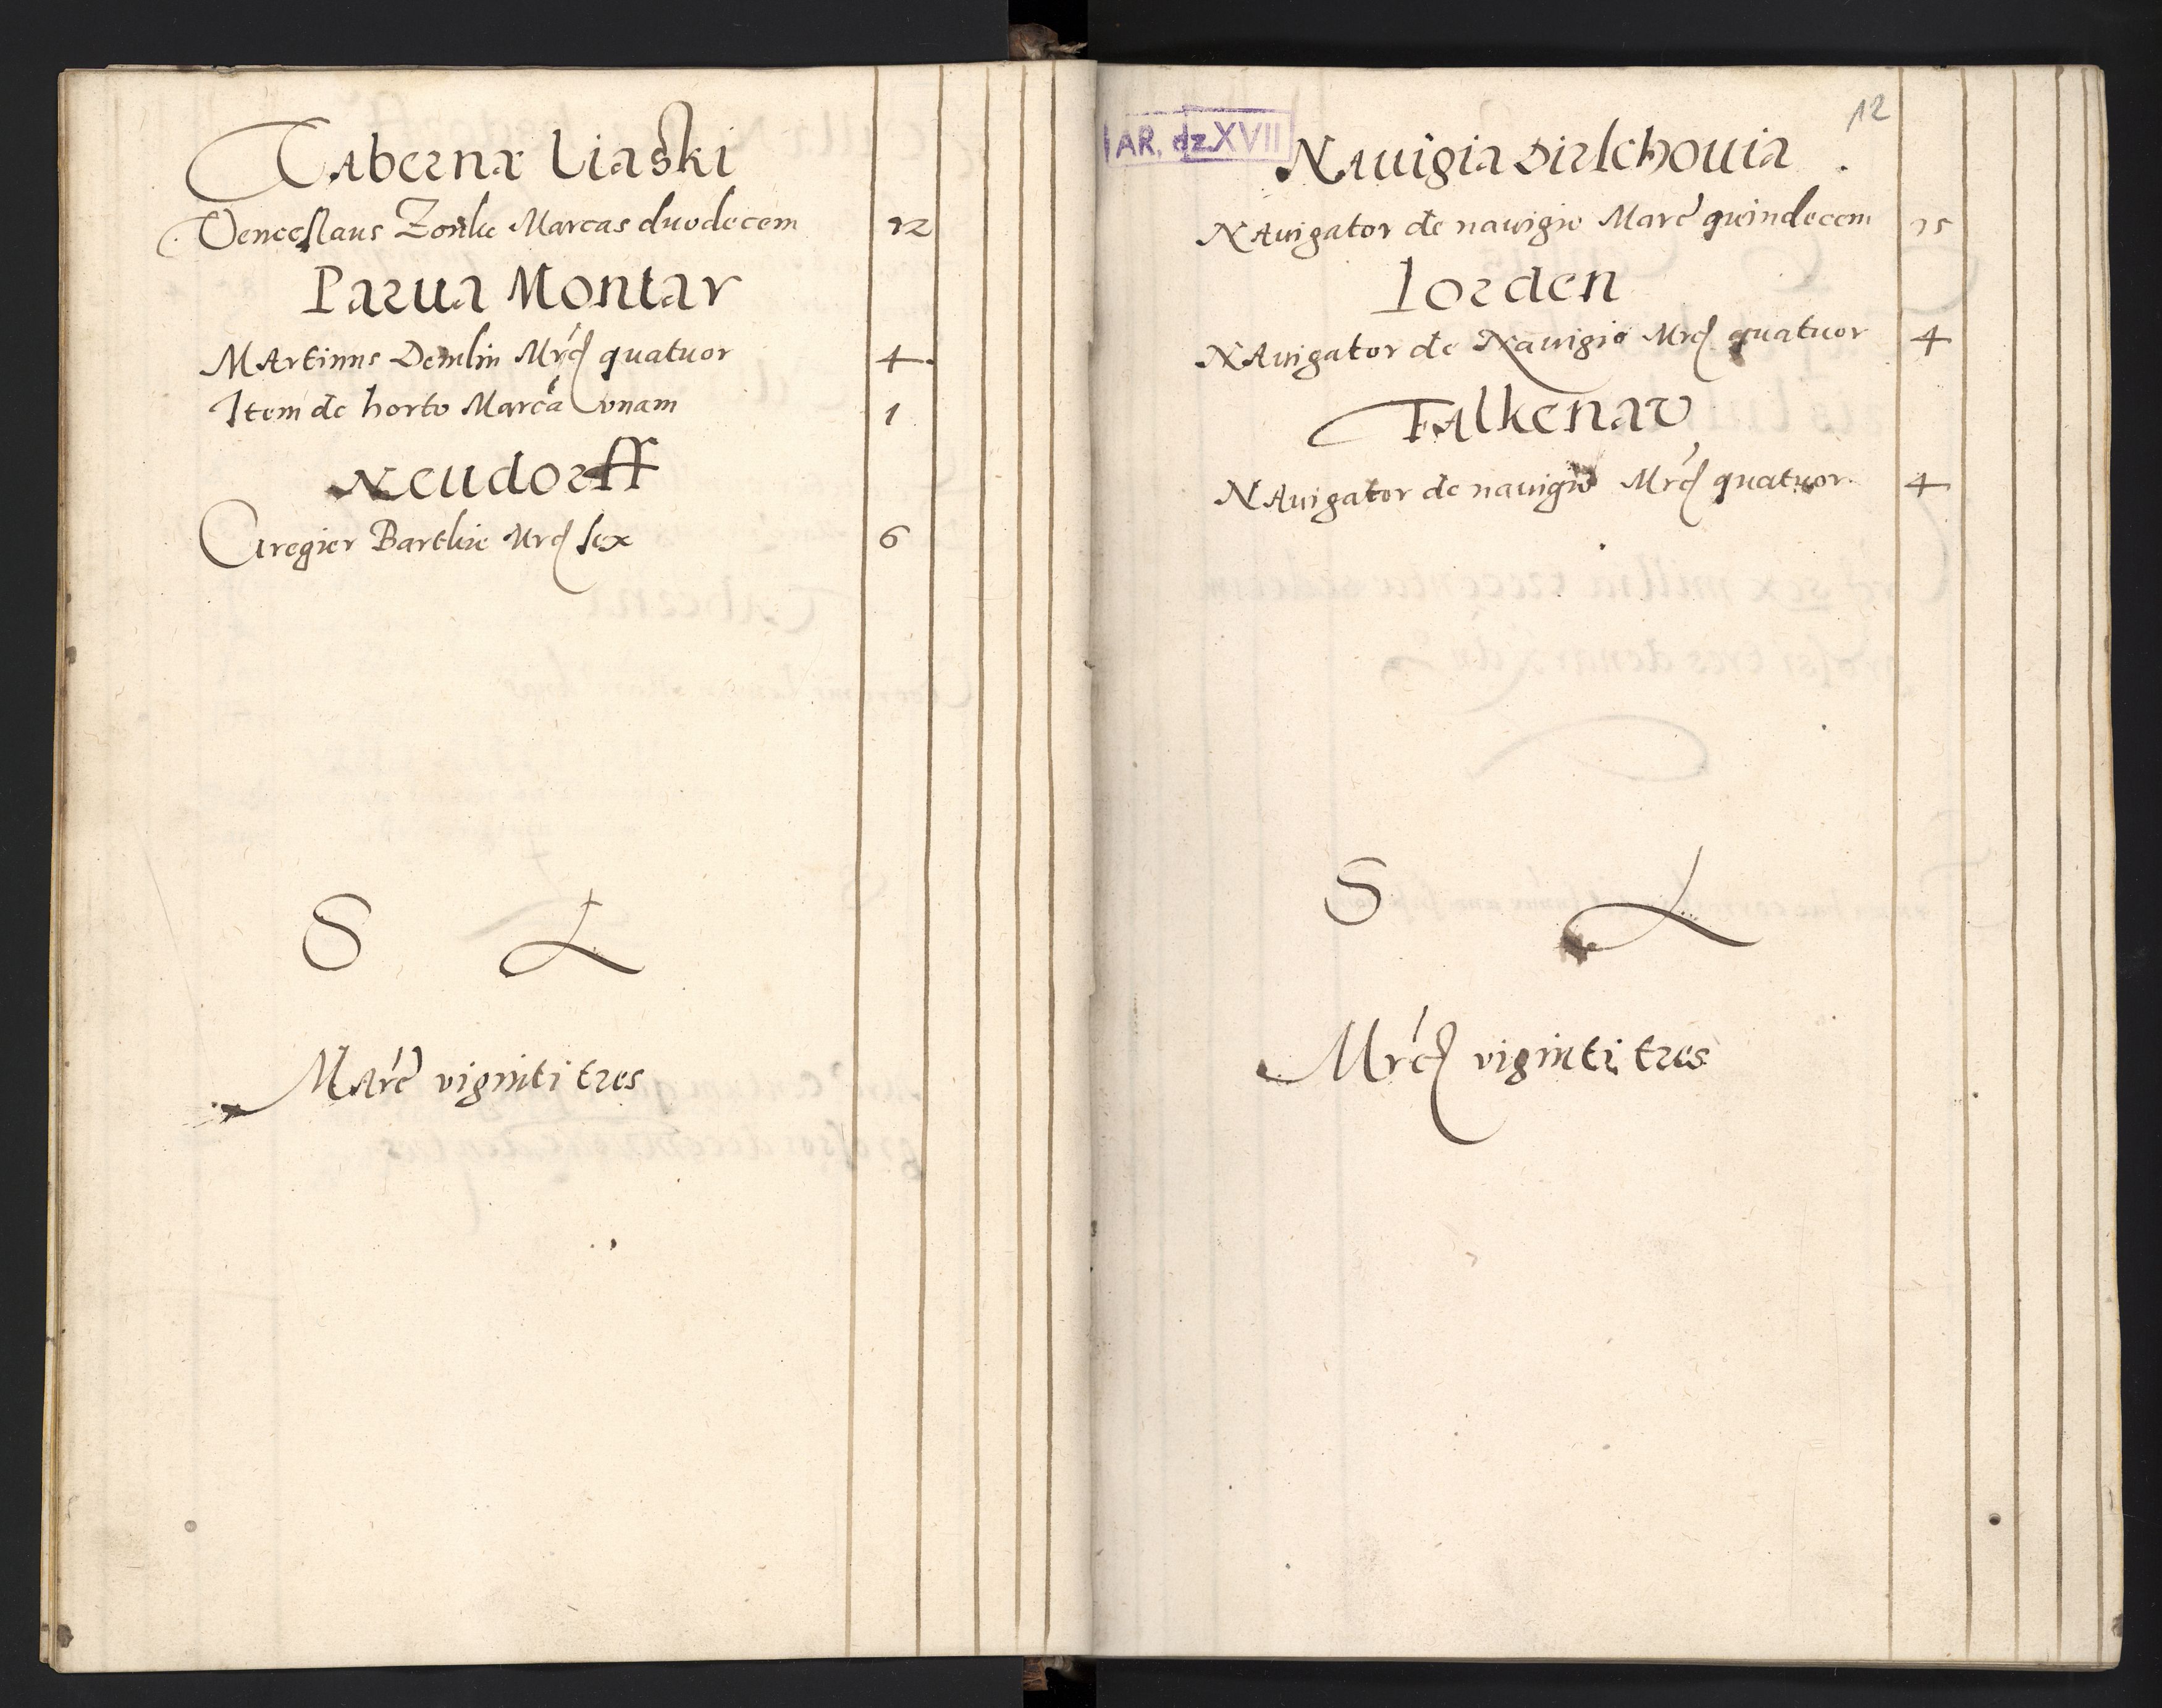 Tabernæ Liaski
Venceslaus Zonke Marcas duodecem 12
Parua Montav
Martinus Demlin Mrc quatuor 4
Item de horto Marcã vnam 1
Neudorff
Gregier Bartlie Mrc sex 6
S L
Marc viginti tres
AR. dz. XVII
12
Nauigia Dirschouia
Nauigator de nauigio Marc quindecem 15
Iorden
Nauigator de Nauigio Mrc quatuor 4
Falkenav
Nauigator de nauigio Mrc quatuor 4
S L
Mrc viginti tres